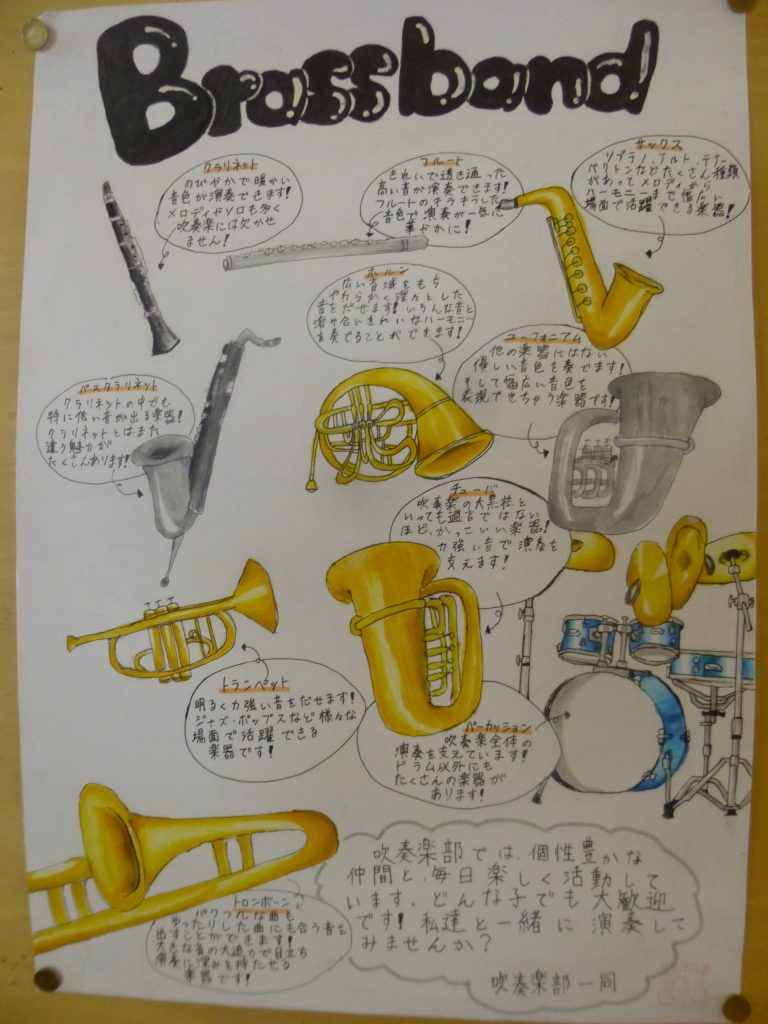 Brass band
クラリネット
のびやかで暖かい
音色が演奏できます!
メロディやソロも多く
吹奏楽には欠かせ
ません!
フルート
きれいで透き通った
高い音が演奏できます!
フルートのキラキラした
音色で演奏が一気に
華やかに!
サックス
ソプラノ、アルト、テナー
バリトンなどたくさん種類
があってメロディから
ハーモニーまで幅広い
場面で活躍できる楽器!
ホルン
広い音域をもち
やわらかく深々とした
音をだせます!いろんな音と
溶け合いきれいなハーモニー
を奏でることができます!
ユーフォニアム
他の楽器にはない
優しい音色を奏でます!
そして幅広い音色を
表現できちゃう楽器です!
バスクラリネット
クラリネットの中でも
特に低い音が出る楽器!
クラリネットとはまた
違う魅力が
たくさんあります!
チューバ
吹奏楽の大黒柱と
いっても過言ではない
ほど、かっこいい楽器!
力強い音で演奏を
支えます!
トランペット
明るく力強い音をだせます!
ジャズ・ポップスなど様々な
場面で活躍できる
楽器です!
パーカッション
吹奏楽全体の
演奏を支えています!
ドラム以外にも
たくさんの楽器が
あります!
トロンボーン
パワフルな曲も
ゆったりした曲にも合う音を
出すことができます!
大きな音の大迫力で目立ち
演奏に深みを持たせる
楽器です!
吹奏楽部では、個性豊かな
仲間と、毎日楽しく活動して
います。どんな子でも大歓迎
です!私達と一緒に演奏して
みませんか?
吹奏楽部一同